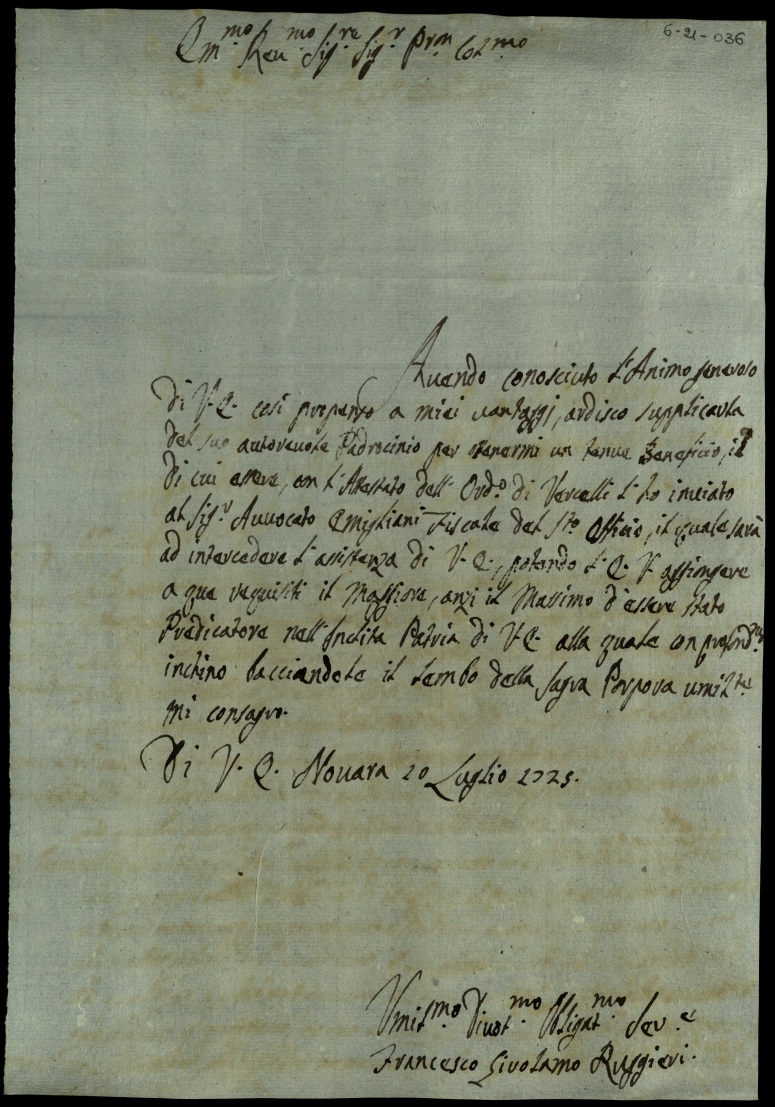 6-21-036
Em.mo Reu.mo Sig.re Sig.r Pron Col.mo
Auendo conosciuto l'Animo generoso
di V. E. così propenso a miei uantaggj, ardisco supplicarla
del suo autoreuole Padrocinio per ottenermi un tenue Beneficio, il
di cui essere, con l'Attestato dell' Ord.o di Vercelli l'ho inuiato
al Sig.r Auuocato Emigliani Fiscale del S.to Officio, il quale sarà
ad intercedere l'assistenza di V. E., potendo l'E. V. aggiongere
a que requisiti il Maggiore, anzi il Massimo d'essere stato
Predicatore nell'Inclita Patria di V. E. alla quale con profond.mo
inchino bacciandole il lembo della Sagra Porpora umilte
mi consagro.
Di V. E. Nouara 20 Luglio 1725.
Umil.mo Diuot.mo Obligat.mo Ser.e
Francesco Girolamo Ruggieri.